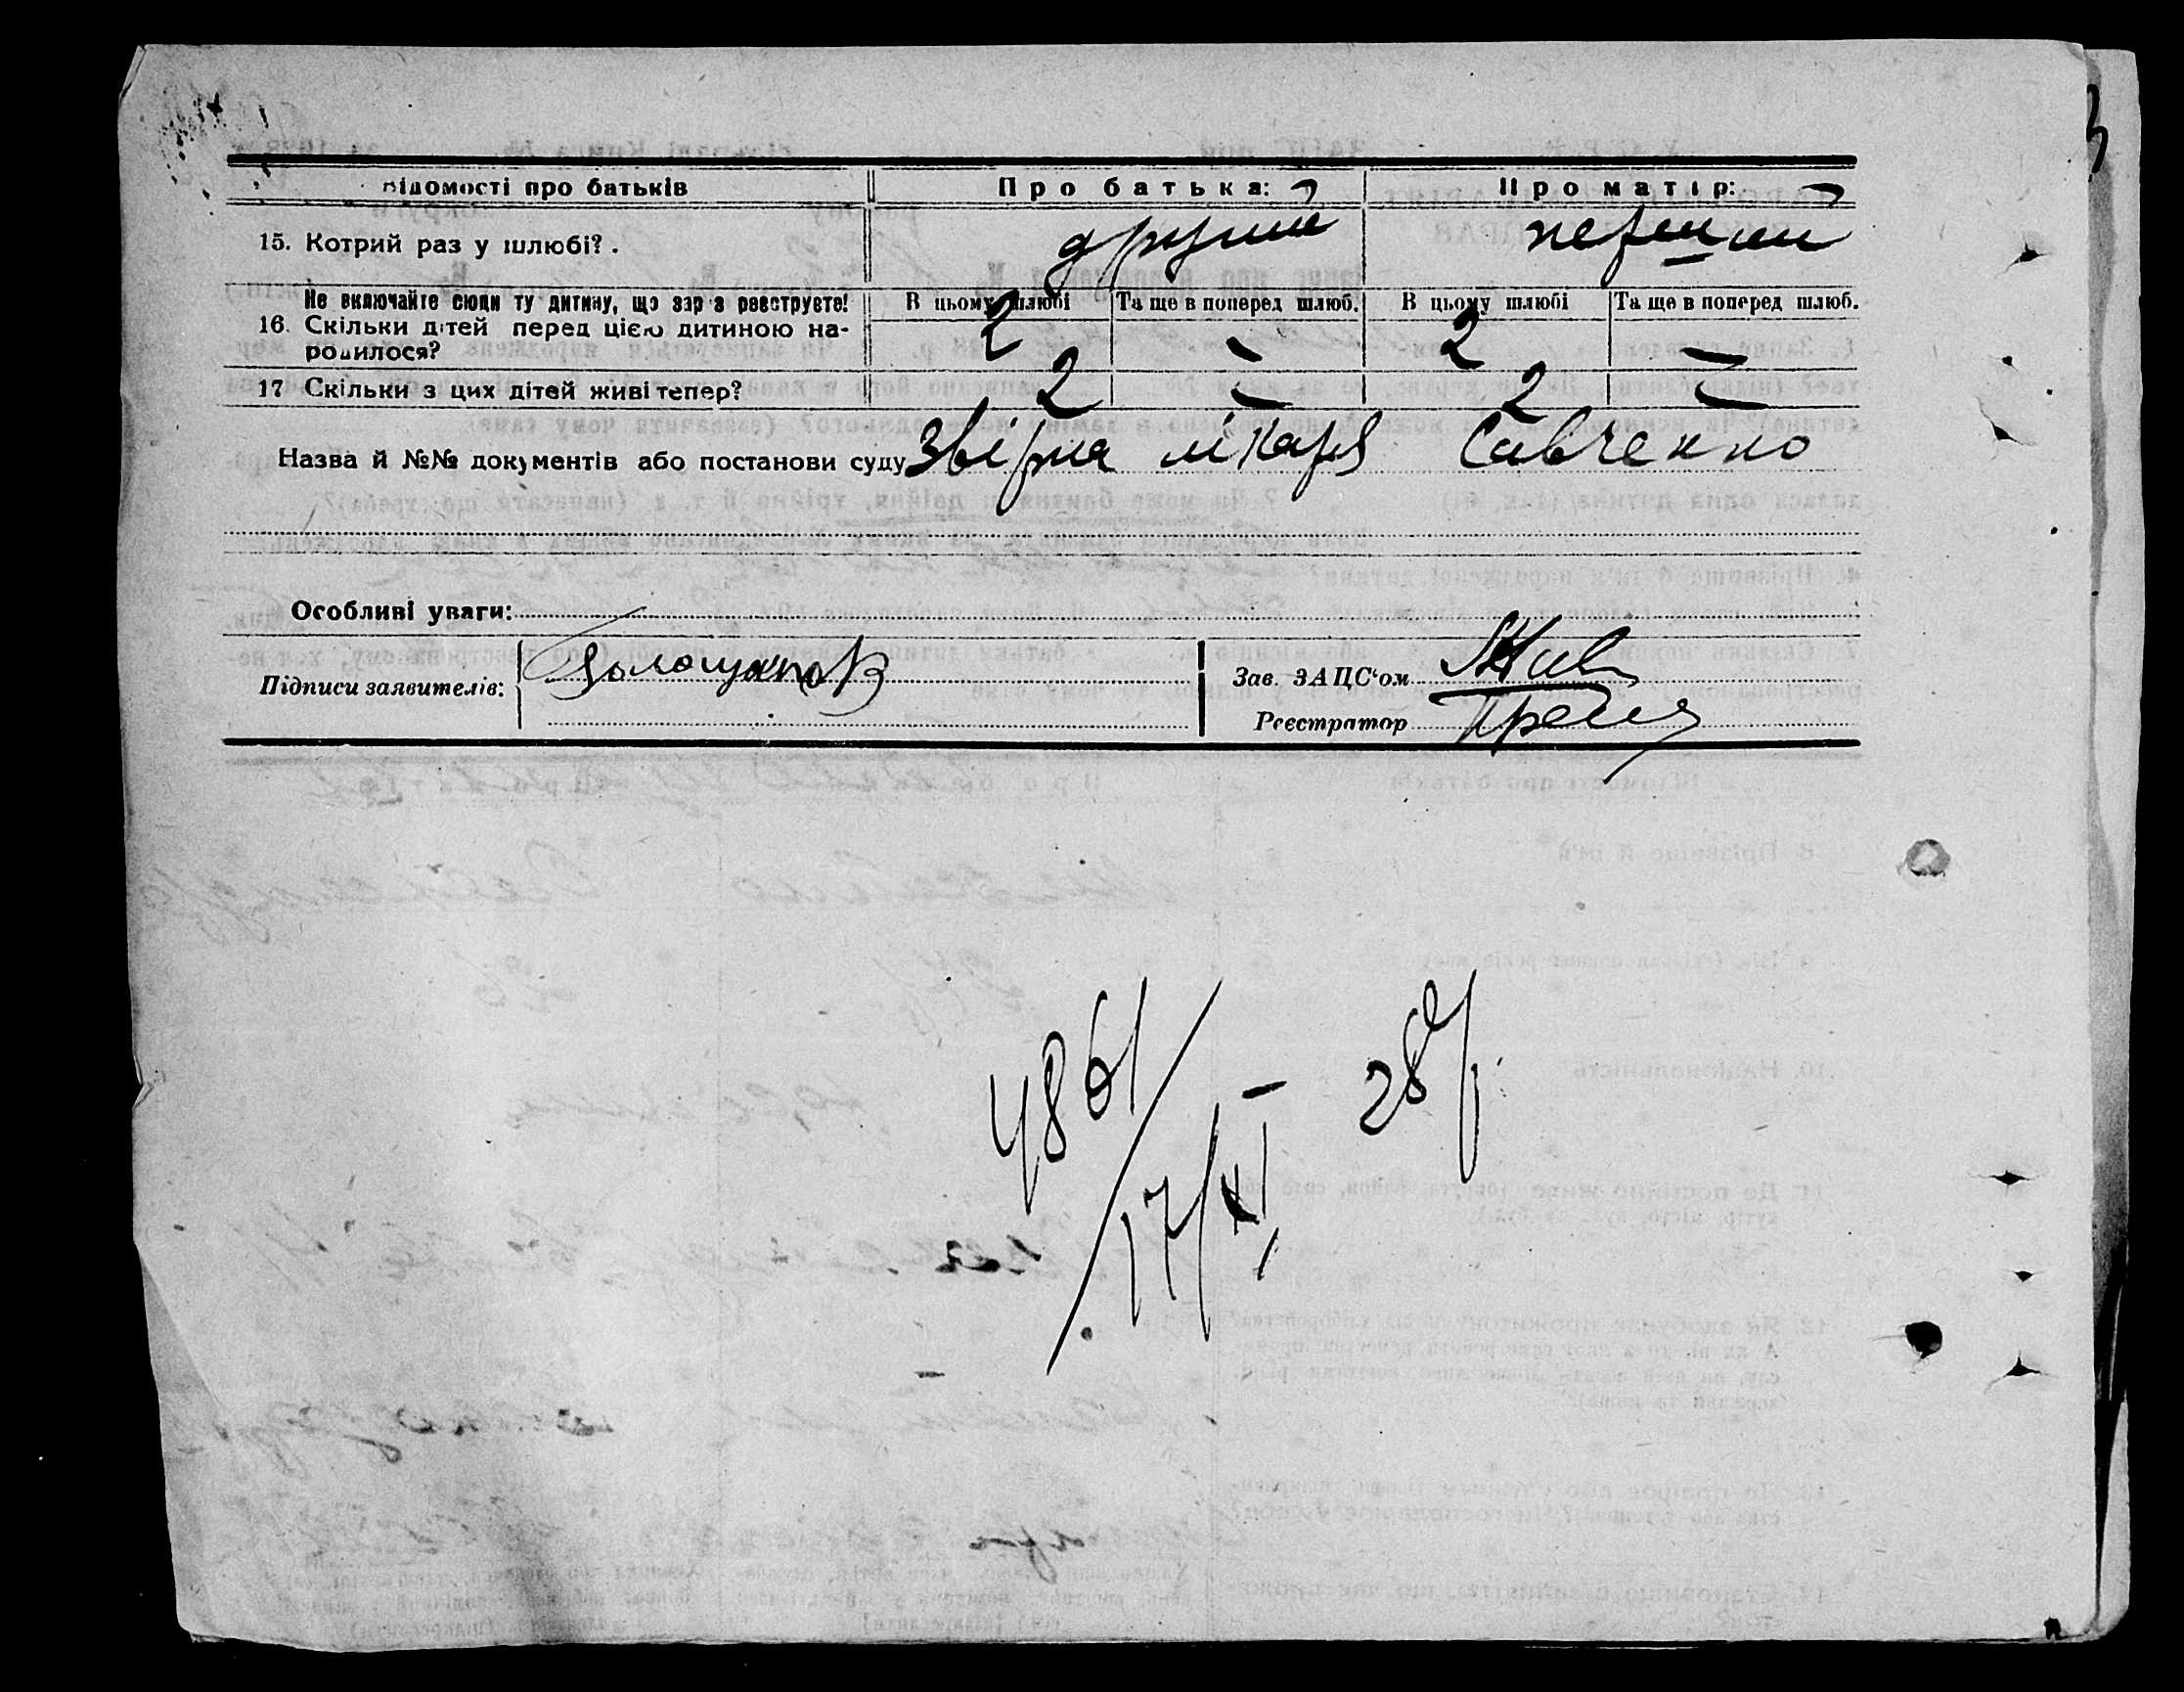 Відомості про батьків Про батька: Про матір:
15. Котрий раз у шлюбі? . другий перший
Не включайте сюди ту дитину, що зараз реєструєте! В цьому шлюбі Та ще в поперед шлюб. В цьому шлюбі Та ще в поперед шлюб.
16. Скільки дітей перед цією дитиною на-
родилося? 2 — 2 —
17 Скільки з цих дітей живі тепер? 2 — 2 —
Назва й №№ документів або постанови суду Звірка лікаря Савченко
Особливі уваги:
Підписи заявителів:
Зав. ЗАЦС‘ом
Реєстратор
4861/17/XI – 28 р.